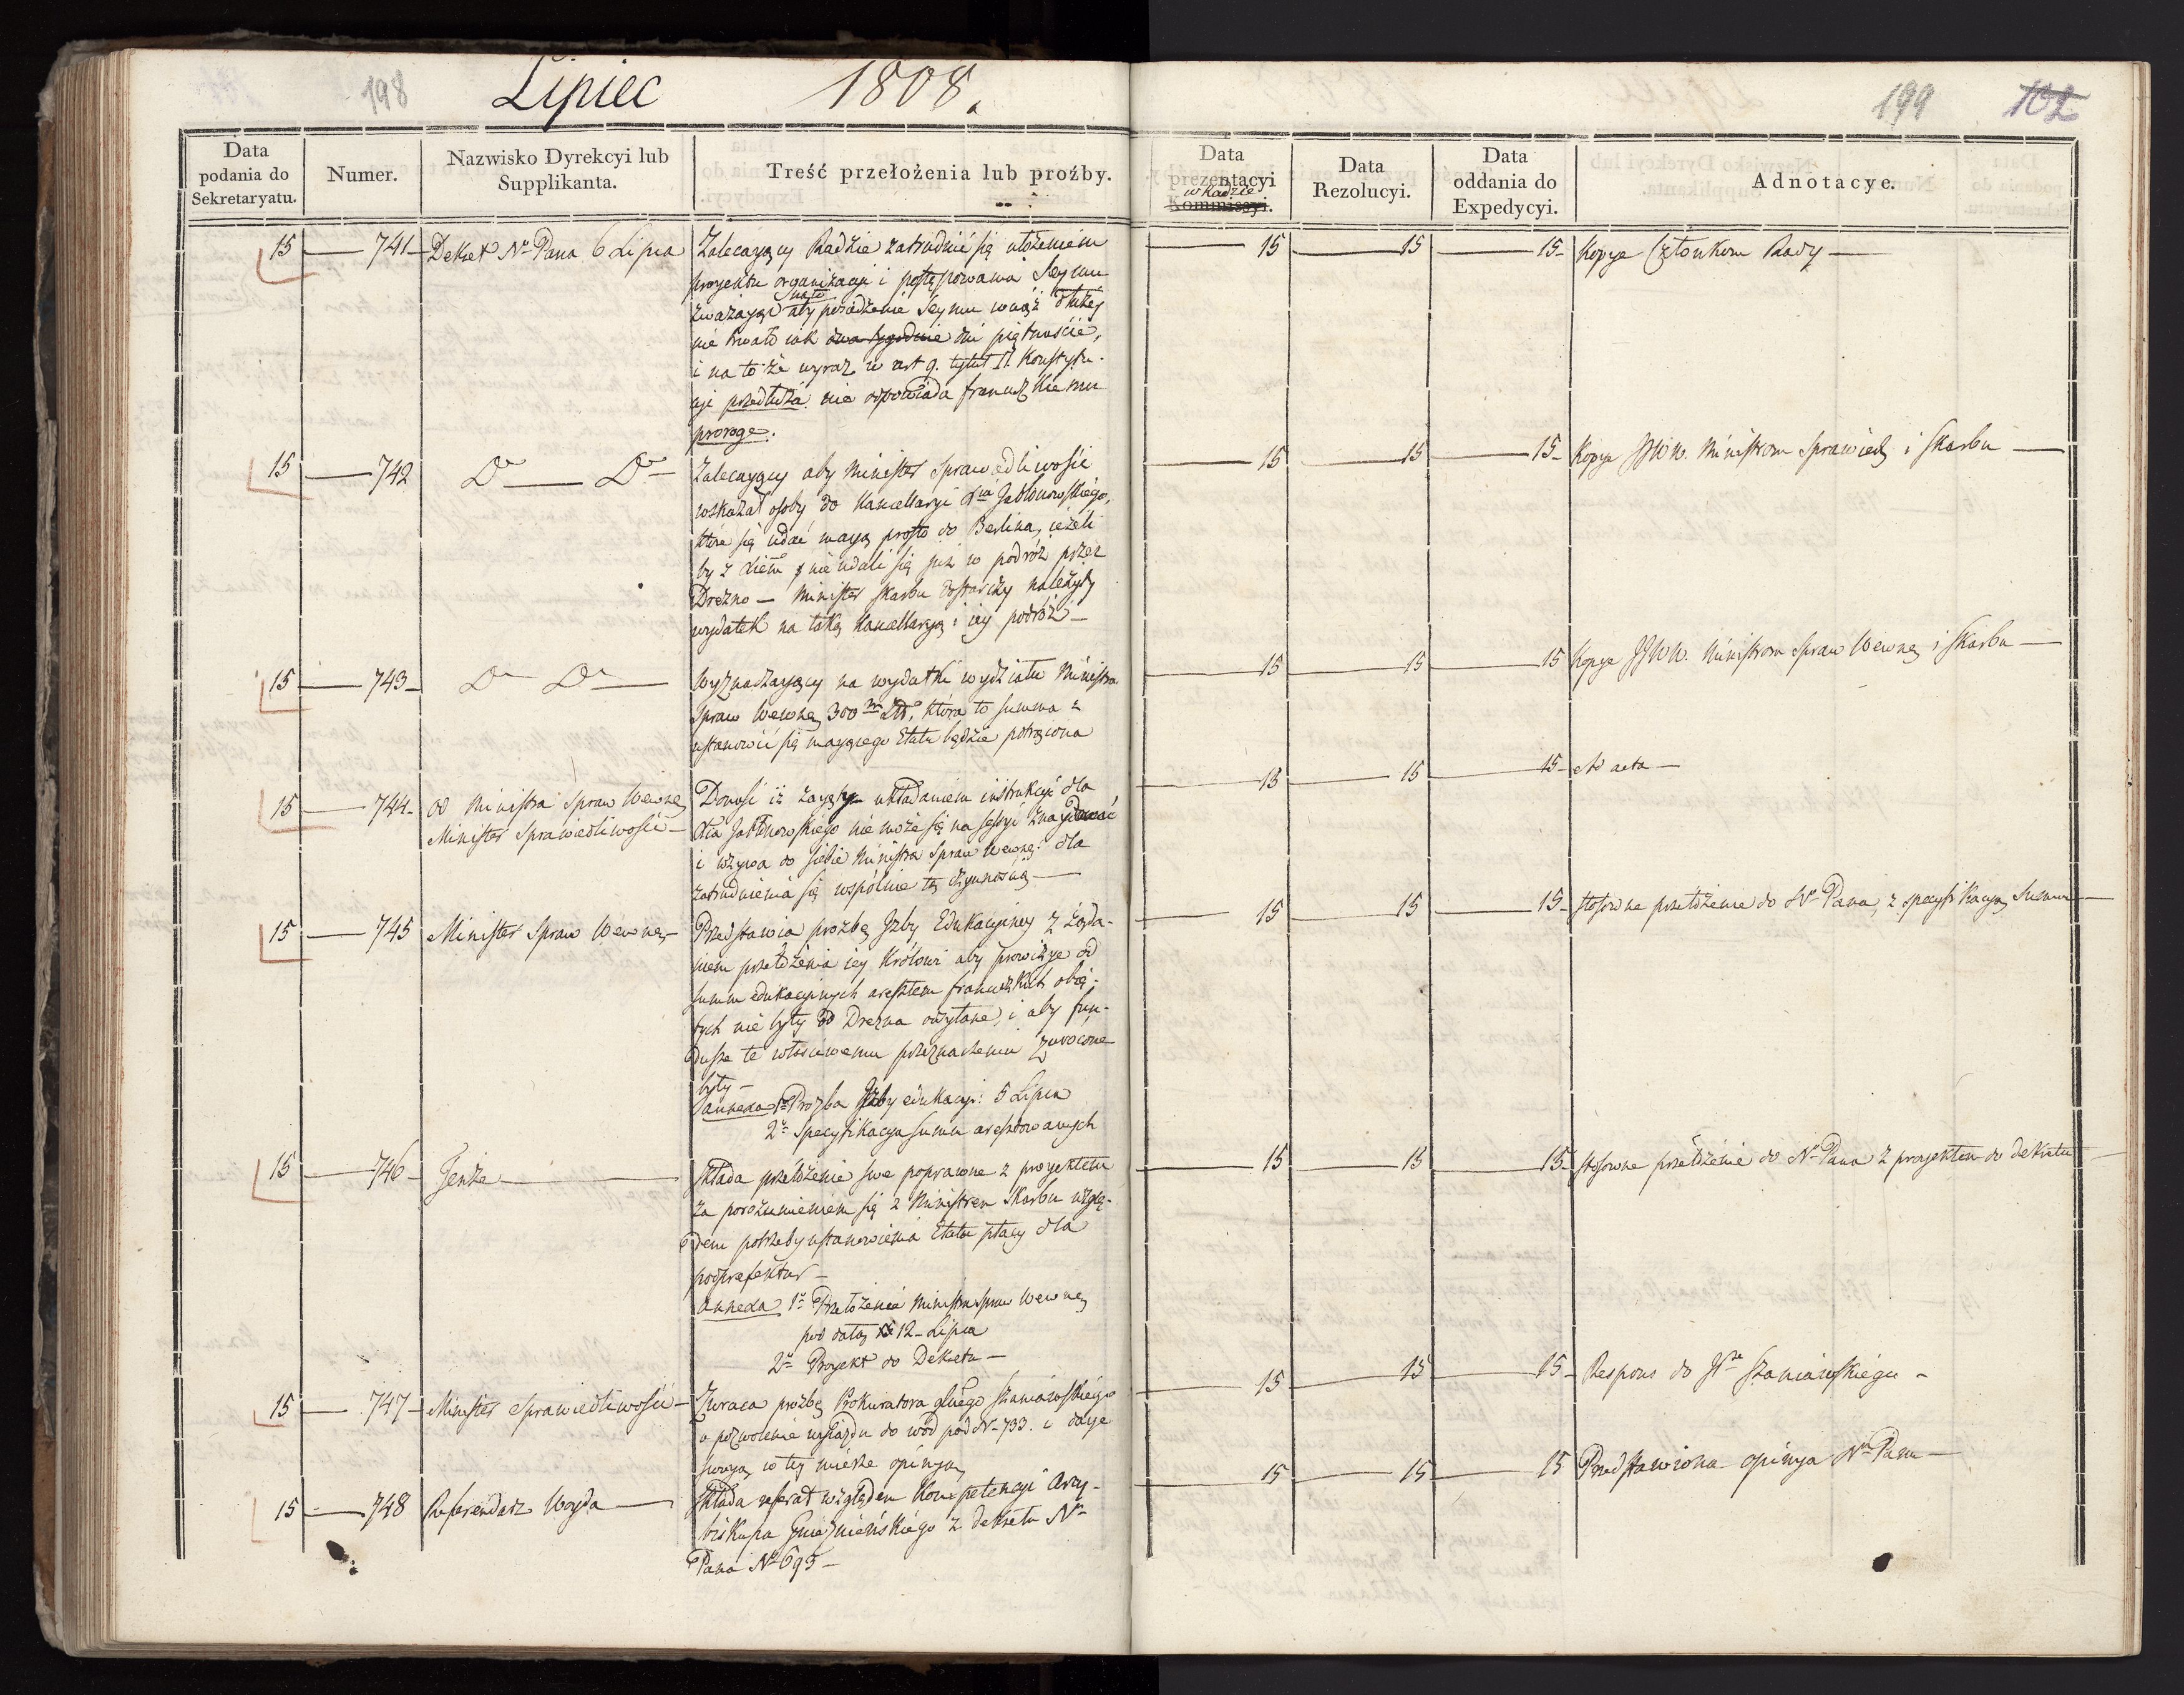 198
Lipiec 1808.
Data podania do Sekretaryatu.
Numer.
Nazwisko Dyrekcyi lub Supplikanta.
Treść przełożenia lub proźby.
199 102
Data prezentacyi w Radzie Kommissyi.
Data Rezolucyi.
Data oddania do Expedycyi.
Adnotacye.
15 — 741 — Dekret Nº Pana 6 Lipca
Zalecaiący Radzie zatrudnić się ułożeniem
proyektu organizacyi i postępowania Seymu
zważaiąc na to aby posiedzenie Seymu wciąż dłużey
nie trwało iak dwa tygodnie dni piętnaście,
i na to że wyraz w art 9. tytuł II. Konstytu-
cyi przedłuża nie odpowiada francuzkiemu
proroge.
15 — 15 — 15 — Kopye Członkom Rady —
15 — 742 Dº — Dº —
Zalecaiący aby Minister Sprawiedliwości
wskazał osoby do Kancellaryi Xcia Jabłonowskiego,
które się udać maią prosto do Berlina, ieżeli
by z Xiem nie udali się już w podróż przez
Drezno — Minister Skarbu dostarczy należyty
wydatek na taką Kancellaryą i iey podróż —
15 — 15 — 15 — Kopye JJWW. Ministrom Sprawied. i Skarbu —
15 — 743 — Dº Dº —
Wyznaczaiący na wydatki wydziału Ministra
Spraw Wewnę. 300 m Złt. która to summa z
ustanowić się maiącego Etatu będzie potrącona
15 — 15 — 15 Kopye JJWW. Ministrom Spraw Wewnę. i Skarbu —
15 — 744 — od Ministra Spraw Wewnę.
Minister Sprawiedliwości —
Donosi iż zaięty układaniem instrukcyi dla
Xcia Jabłonowskiego nie może się na sessyi znaydować
i wzywa do siebie Ministra Spraw Wewnę: dla
zatrudnienia się wspólnie tą czynnością —
15 — 15 — 15 — Ad acta —
15 — 745 Minister Spraw Wewnę. —
Przedstawia prożbę Izby Edukacyiney z żąda-
niem przełożenia iey Królowi aby prowizye od
summ edukacyinych aresztem francuzkich obię-
tych nie były do Drezna odsyłane, i aby fun-
dusze te właściwemu przeznaczeniu zwrócone
były —
annexa 1º Prozba Izby edukacyi: 5 Lipca
2º Specyfikacya summ aresztowanych
15 — 15 — 15 — stosowne przełożenie do Nº Pana, z specyfikacyą Summ —
15 — 746 — Tenże —
Składa przełożenie swe poprawne z proyektem
za porozumieniem się z Ministrem Skarbu wzglę-
dem potrzeby ustanowienia Etatu płacy dla
podprefektur —
annexa 1º Przełożenie Ministra Spraw Wewnę.
pod datą 12 Lipca
2º Proyekt do Dekretu —
15 — 15 — 15 — stosowne przełożenie do Nº Pana z proyektem do dekretu
15 — 747 — Minister Sprawiedliwości —
Zwraca prożbę Prokuratora głnego Szaniawskiego
o pozwolenie wyiazdu do wód pod Nº 733. i daie
swoią w tey mierze opinyą
15 15 15 — Respons do JPa Szaniawskiego —
15 — 748 Referendarz Woyda —
Składa referat względem kompetencyi Arcy-
biskupa Gnieznieńskiego z dekretu Nº
Pana Nº 695 —
15 — 15 — 15 Przedstawiona opinya Nmu Panu —